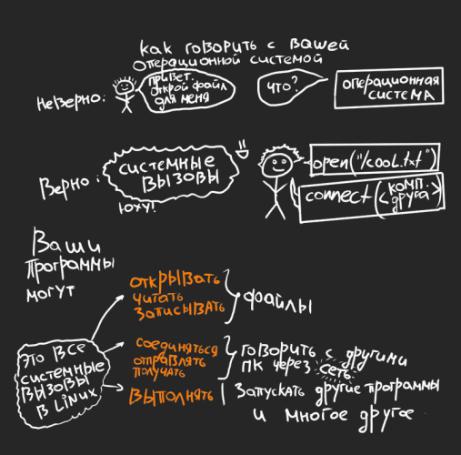 как говорить с вашей
операционной системой
неверно:
привет.
открой файл
для меня
что?
операционная
система
Верно:
системные
вызовы
юху!
open("/cool.txt")
connect(<комп. друга>)
Ваши
программы
могут
открывать
читать
записывать
файлы
это все
системные
вызовы
в Linux
соединяться
отправлять
получать
говорить с другими
ПК через сеть
выполнять
запускать другие программы
и многое другое